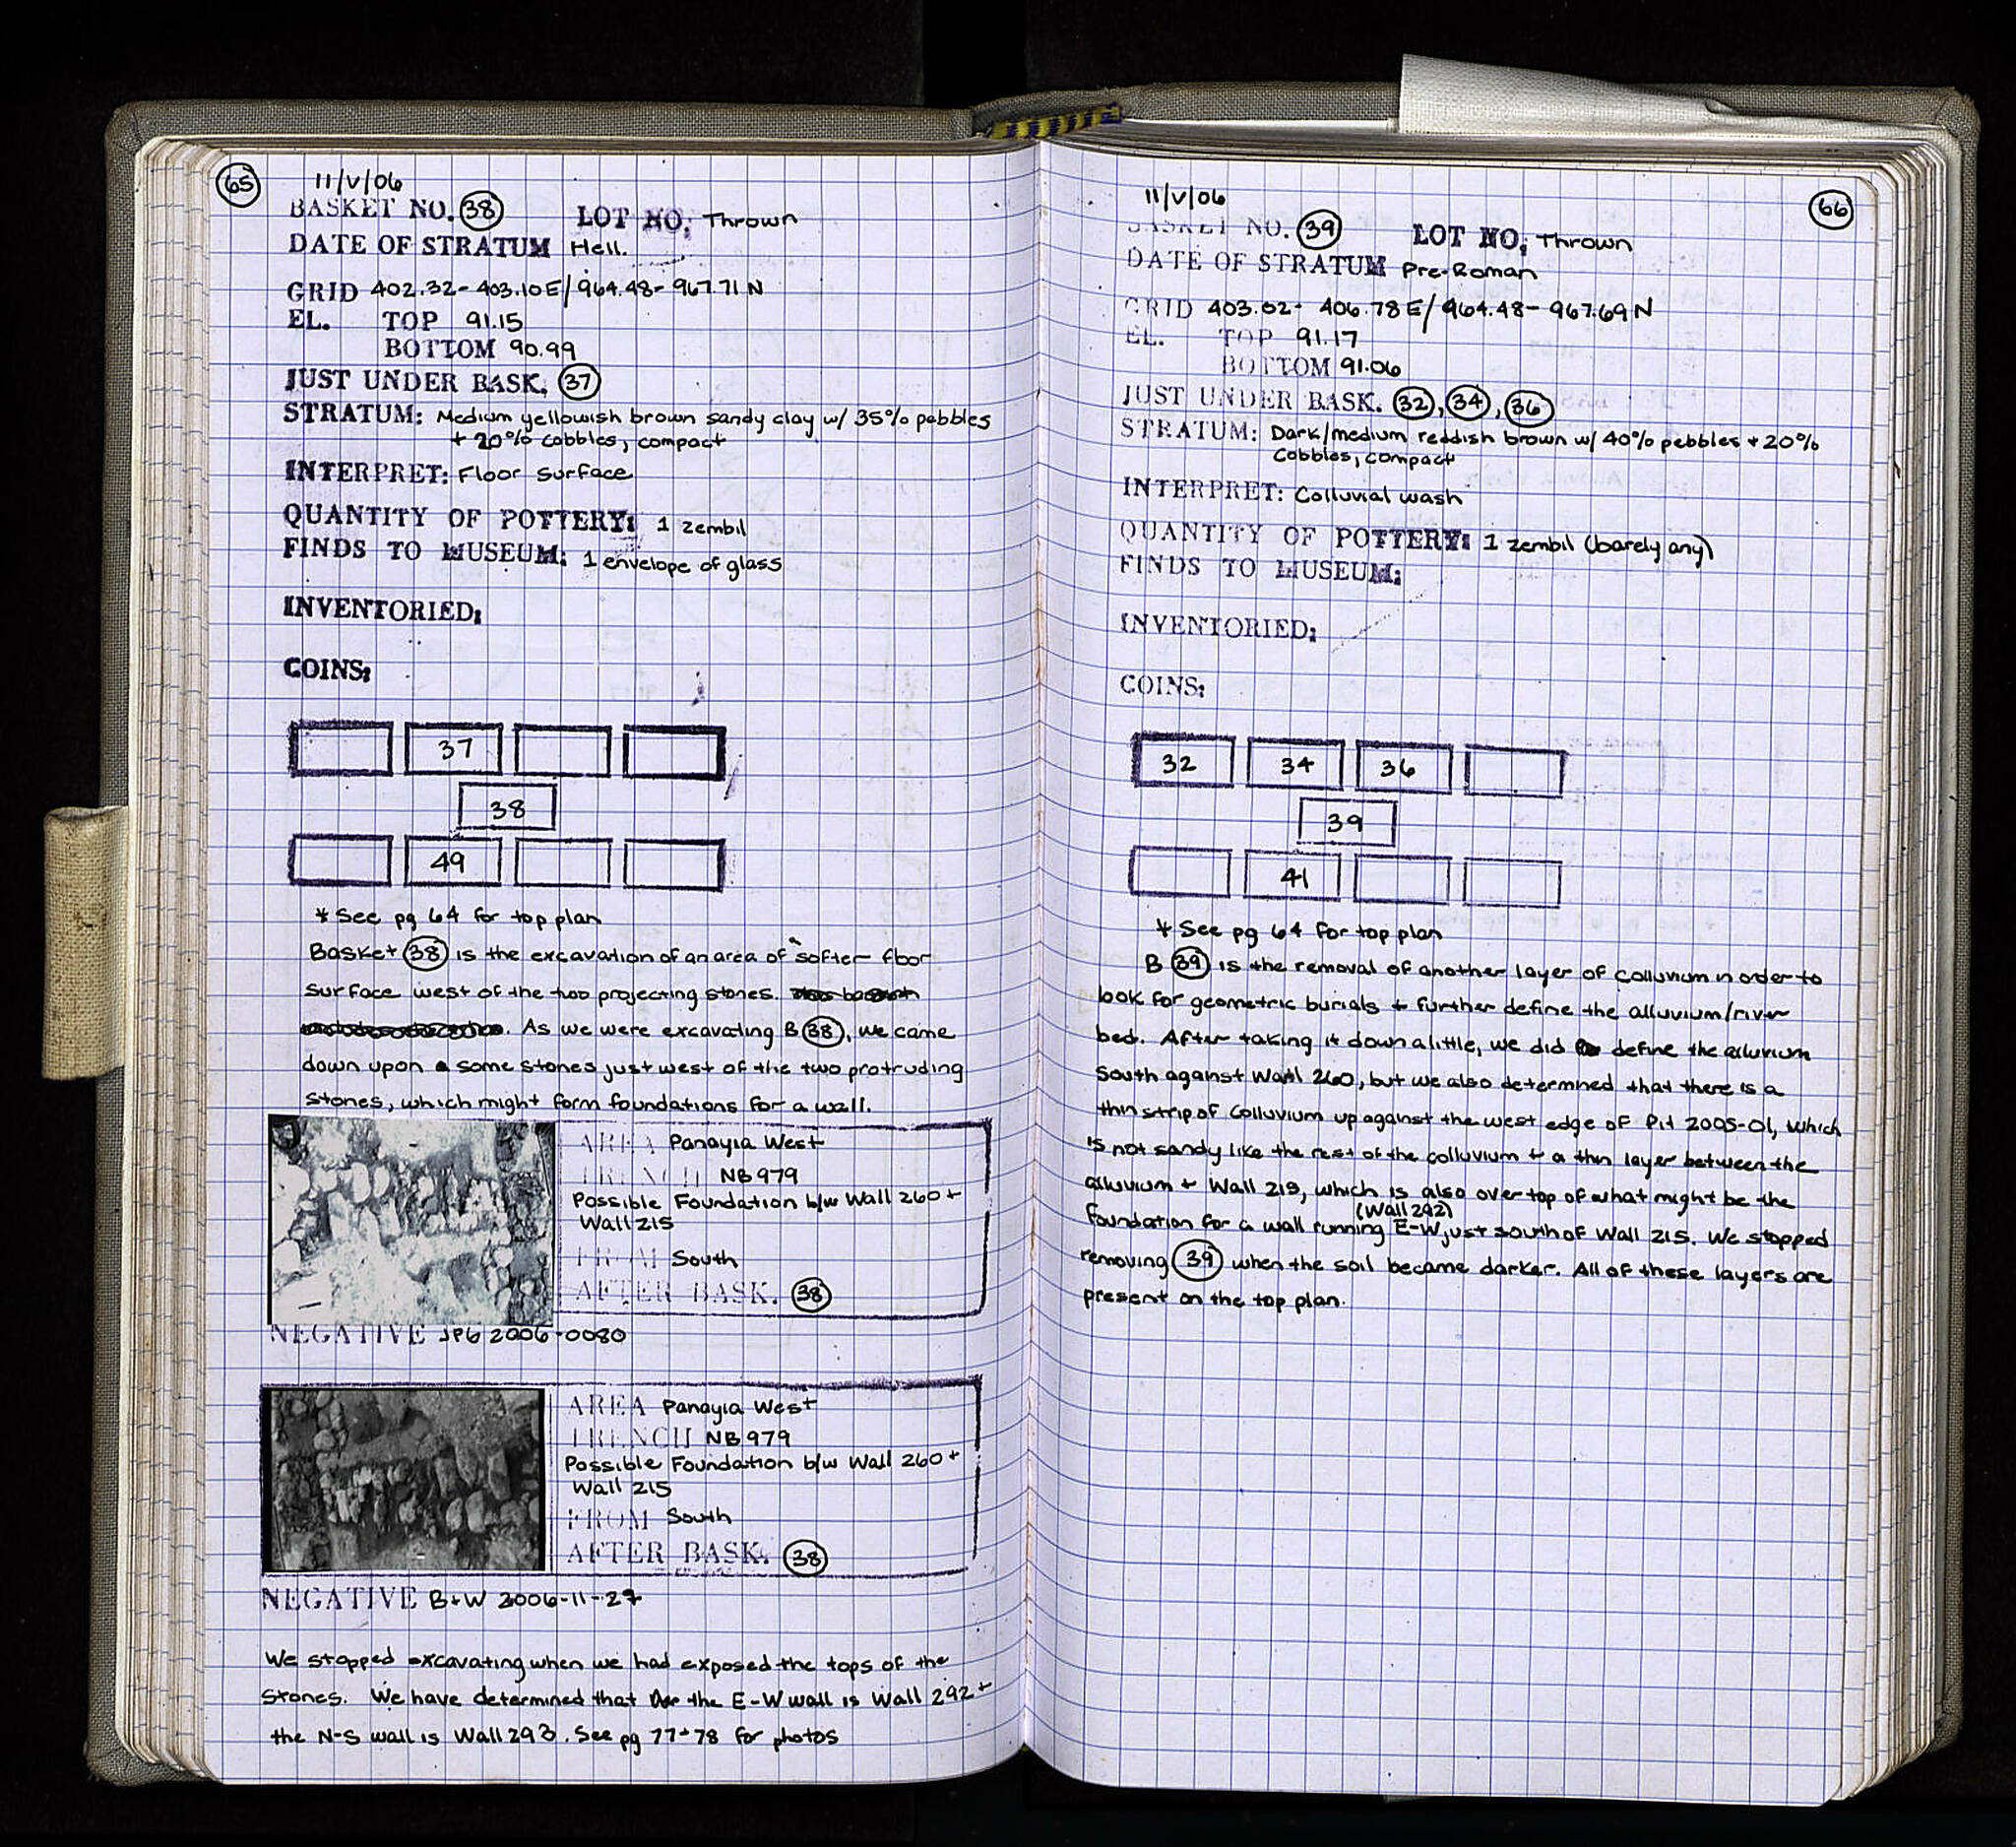 65
11/V/06
BASKET NO. 38 LOT NO. Thrown
DATE OF STRATUM Hell.
GRID 402.32-403.10E/964.48-967.71N
EL. TOP 91.15
BOTTOM 90.99
JUST UNDER BASK. 37
STRATUM: Medium yellowish brown sandy clay w/ 35% pebbles
+ 20% cobbles, compact
INTERPRET: Floor surface
QUANTITY OF POTTERY: 1 zembil
FINDS TO MUSEUM: 1 envelope of glass
INVENTORIED:
COINS:
37
38
49
* See pg 64 for top plan
Basket 38 is the excavation of an area of a softer floor
surface west of the two projecting stones.
. As we were excavating B 38, we came
down upon some stones just west of the two protruding
stones, which might form foundations for a wall.
AREA Panayia West
TRENCH NB979
Possible Foundation b/w Wall 260 +
Wall 215
FROM South
AFTER BASK. 38
NEGATIVE JPG 2006-0080
AREA Panayia West
TRENCH NB 979
Possible Foundation b/w Wall 260 +
Wall 215
FROM South
AFTER BASK. 38
NEGATIVE B+W 2006-11-27
We stopped excavating when we had exposed the tops of the
stones. We have determined that the E-W wall is Wall 292 +
the N-S wall is Wall 293. See pg 77+78 for photos
66
11/V/06
BASKET NO. 39 LOT NO. Thrown
DATE OF STRATUM Pre-Roman
GRID 403.02-406.78E/964.48-967.69N
EL. TOP 91.17
BOTTOM 91.06
JUST UNDER BASK. 32, 34, 36
STRATUM: Dark/medium reddish brown w/ 40% pebbles + 20%
cobbles, compact
INTERPRET: Colluvial wash
QUANTITY OF POTTERY: 1 zembil (barely any)
FINDS TO MUSEUM:
INVENTORIED:
COINS:
32 34 36
39
41
* See pg 64 for top plan
B 39 is the removal of another layer of colluvium in order to
look for geometric burials + further define the alluvium/river
bed. After taking it down a little, we did define the alluvium
south against Wall 260, but we also determined that there is a
thin strip of colluvium up against the west edge of Pit 2005-01, which
is not sandy like the rest of the colluvium + a thin layer between the
alluvium + Wall 215, which is also over top of what might be the
(Wall 292)
foundation for a wall running E-W just south of Wall 215. We stopped
removing 39 when the soil became darker. All of these layers are
present on the top plan.